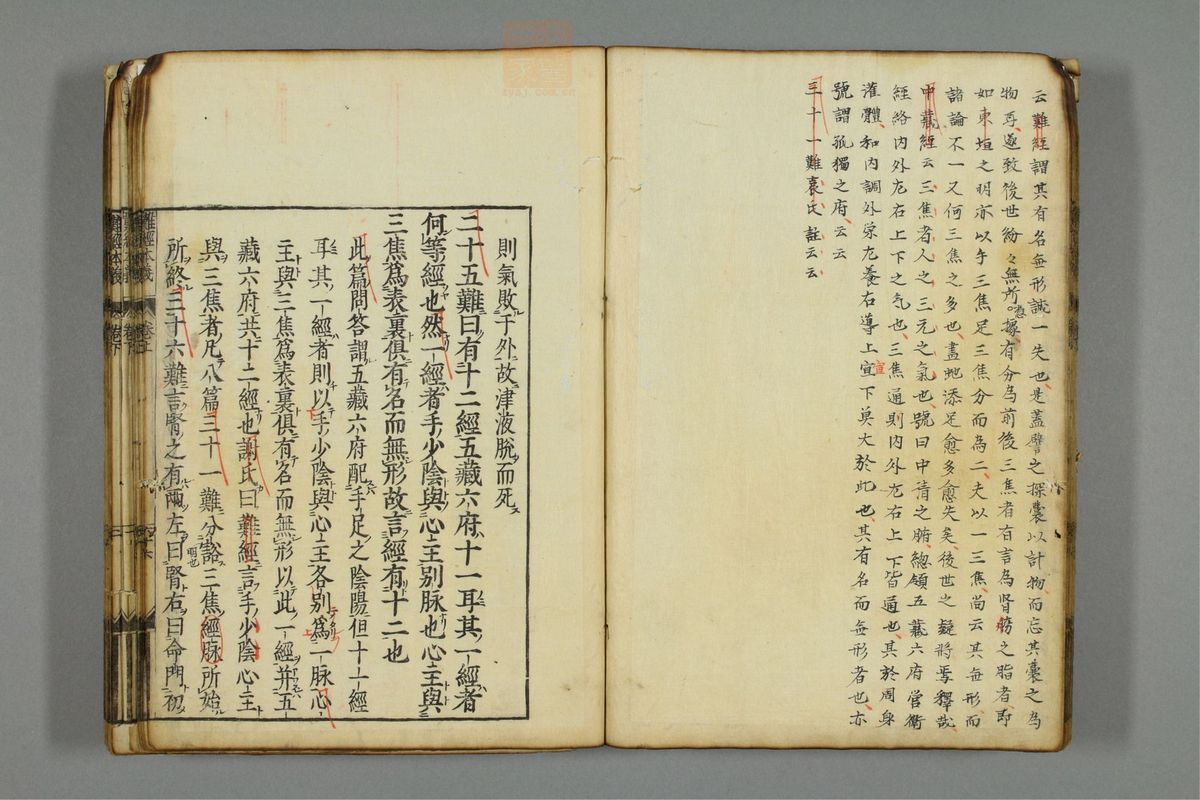 云難經謂其有名無形誠一失也是蓋譬之探囊以計物而忘其囊之為
物再遂致後世紛々無所憑據有分為前後三焦者有言為腎䏶之脂者即
如東垣之明亦以手三焦足三焦分而為二夫以一三焦尚云其無形而
諸論不一又何三焦之多也畫蛇添足愈多愈失矣後世之疑將焉釋哉
中藏經云三焦者人之三元之氣也號曰中清之腑總領五藏六府营衛
經絡内外左右上下之气也三焦通則内外左右上下皆通也其於周身
灌體和内調外榮左養右導上宣下莫大於此也其有名而無形者也亦
號謂孤獨之府云云
三十一難袁氏註云云
則氣敗于外故津液脫而死
二十五難曰有十二經五藏六府十一耳其一經者
何等經也然一經者手少陰與心主別脉也心主與
三焦爲表裏俱有名而無形故言經有十二也
此篇問答謂五藏六府配手足之陰陽但十一經
耳其一經者則以手少陰與心主各別爲一脉心
主與三焦爲表裏俱有名而無形以此一經并五
藏六府共十二經也謝氏曰難經言手少陰心主
與三焦者凡八篇三十一難分豁三焦經脉所始
所終三十六難言腎之有兩左曰腎右曰命門初
難經本義
卷上
卷下